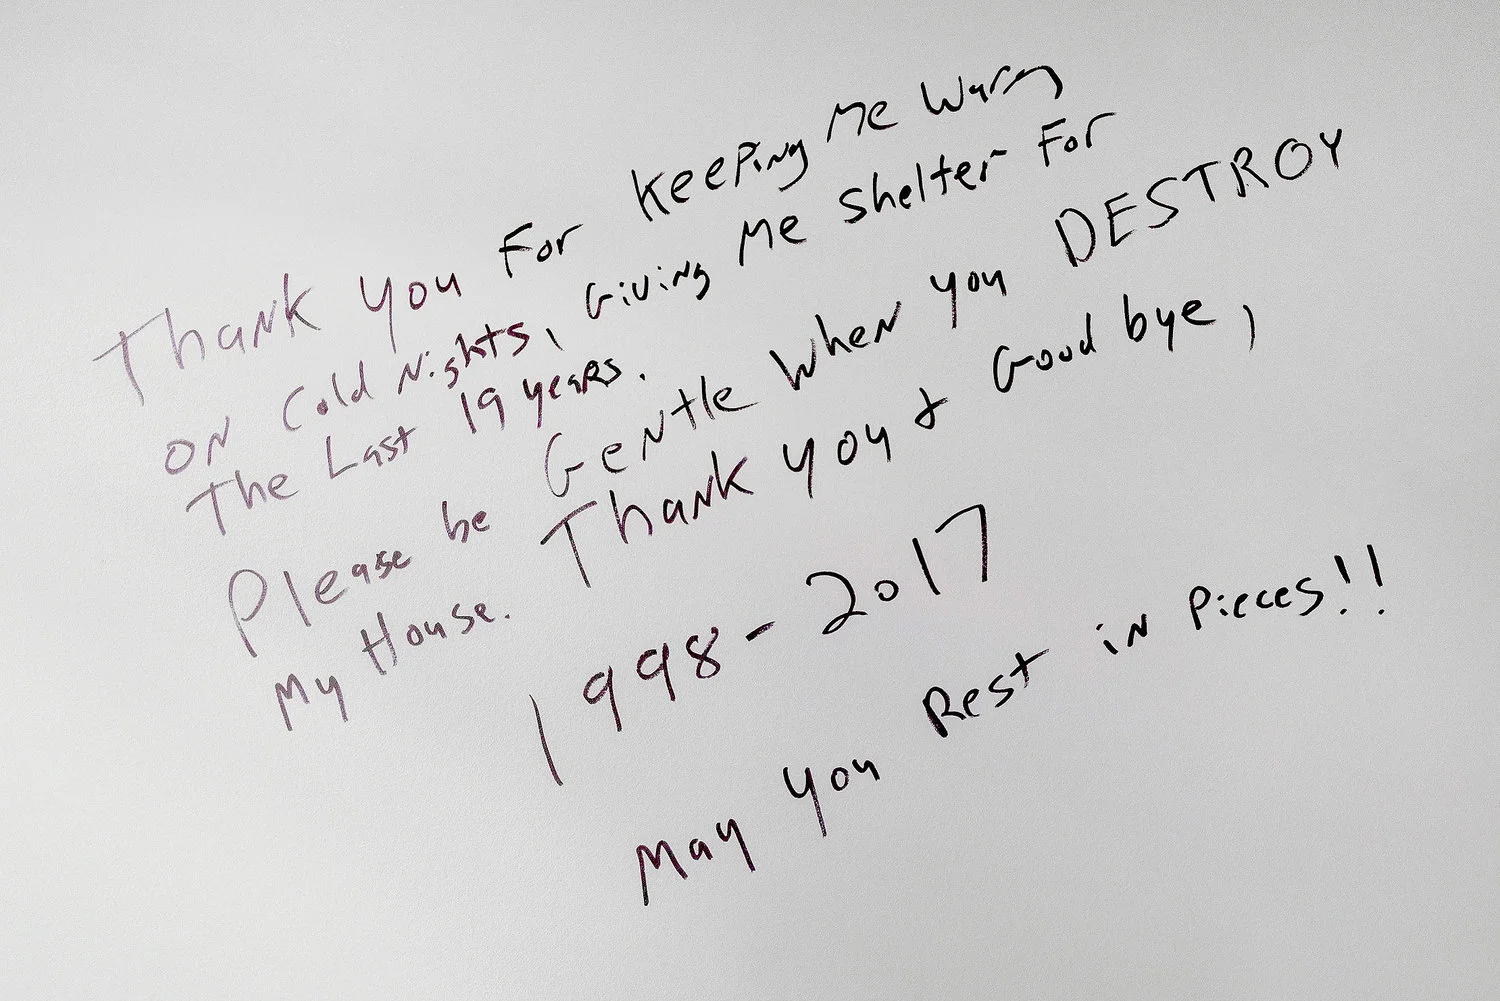 Thank you For Keeping Me Warm
ON Cold Nights, Giving Me Shelter For
The Last 19 years.
Please be Gentle When you DESTROY
My House. Thank you & Good bye,
1998-2017
May you Rest in Pieces!!